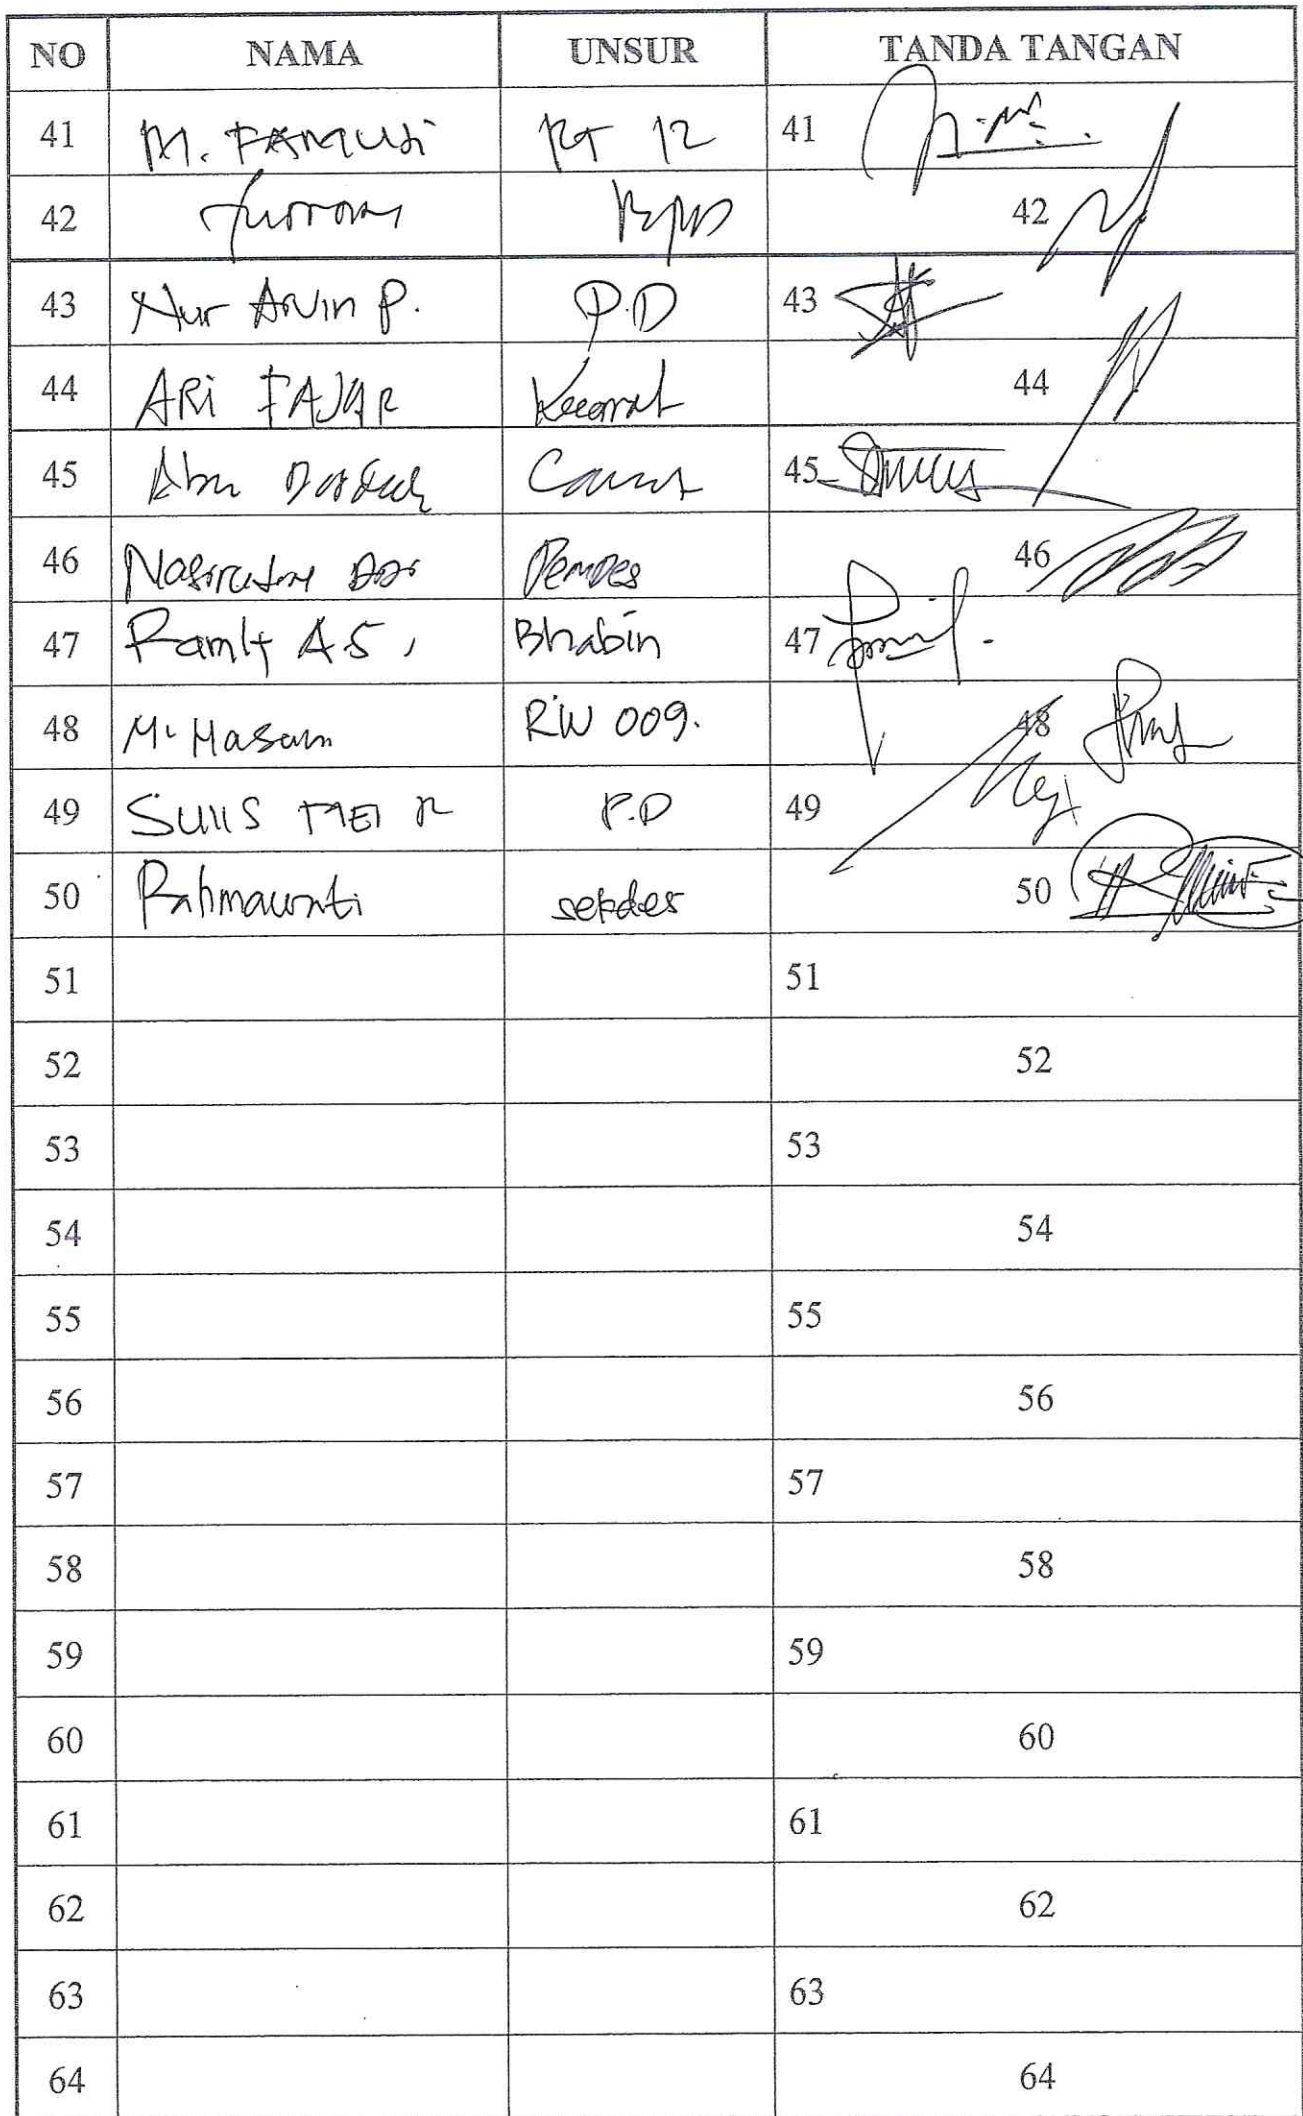 NO NAMA UNSUR TANDA TANGAN
41 M. FAMUJI RT 12 41
42 BPD 42
43 Nur Arvin P. P.D 43
44 ARi FAJAR Kecamat 44
45 Abu Camat 45
46 Pemdes 46
47 Ramly A S, Bhabin 47
48 M. Hasam RW 009. 48
49 SULIS MEI R P.D 49
50 Rahmawati sekdes 50
51 51
52 52
53 53
54 54
55 55
56 56
57 57
58 58
59 59
60 60
61 61
62 62
63 63
64 64